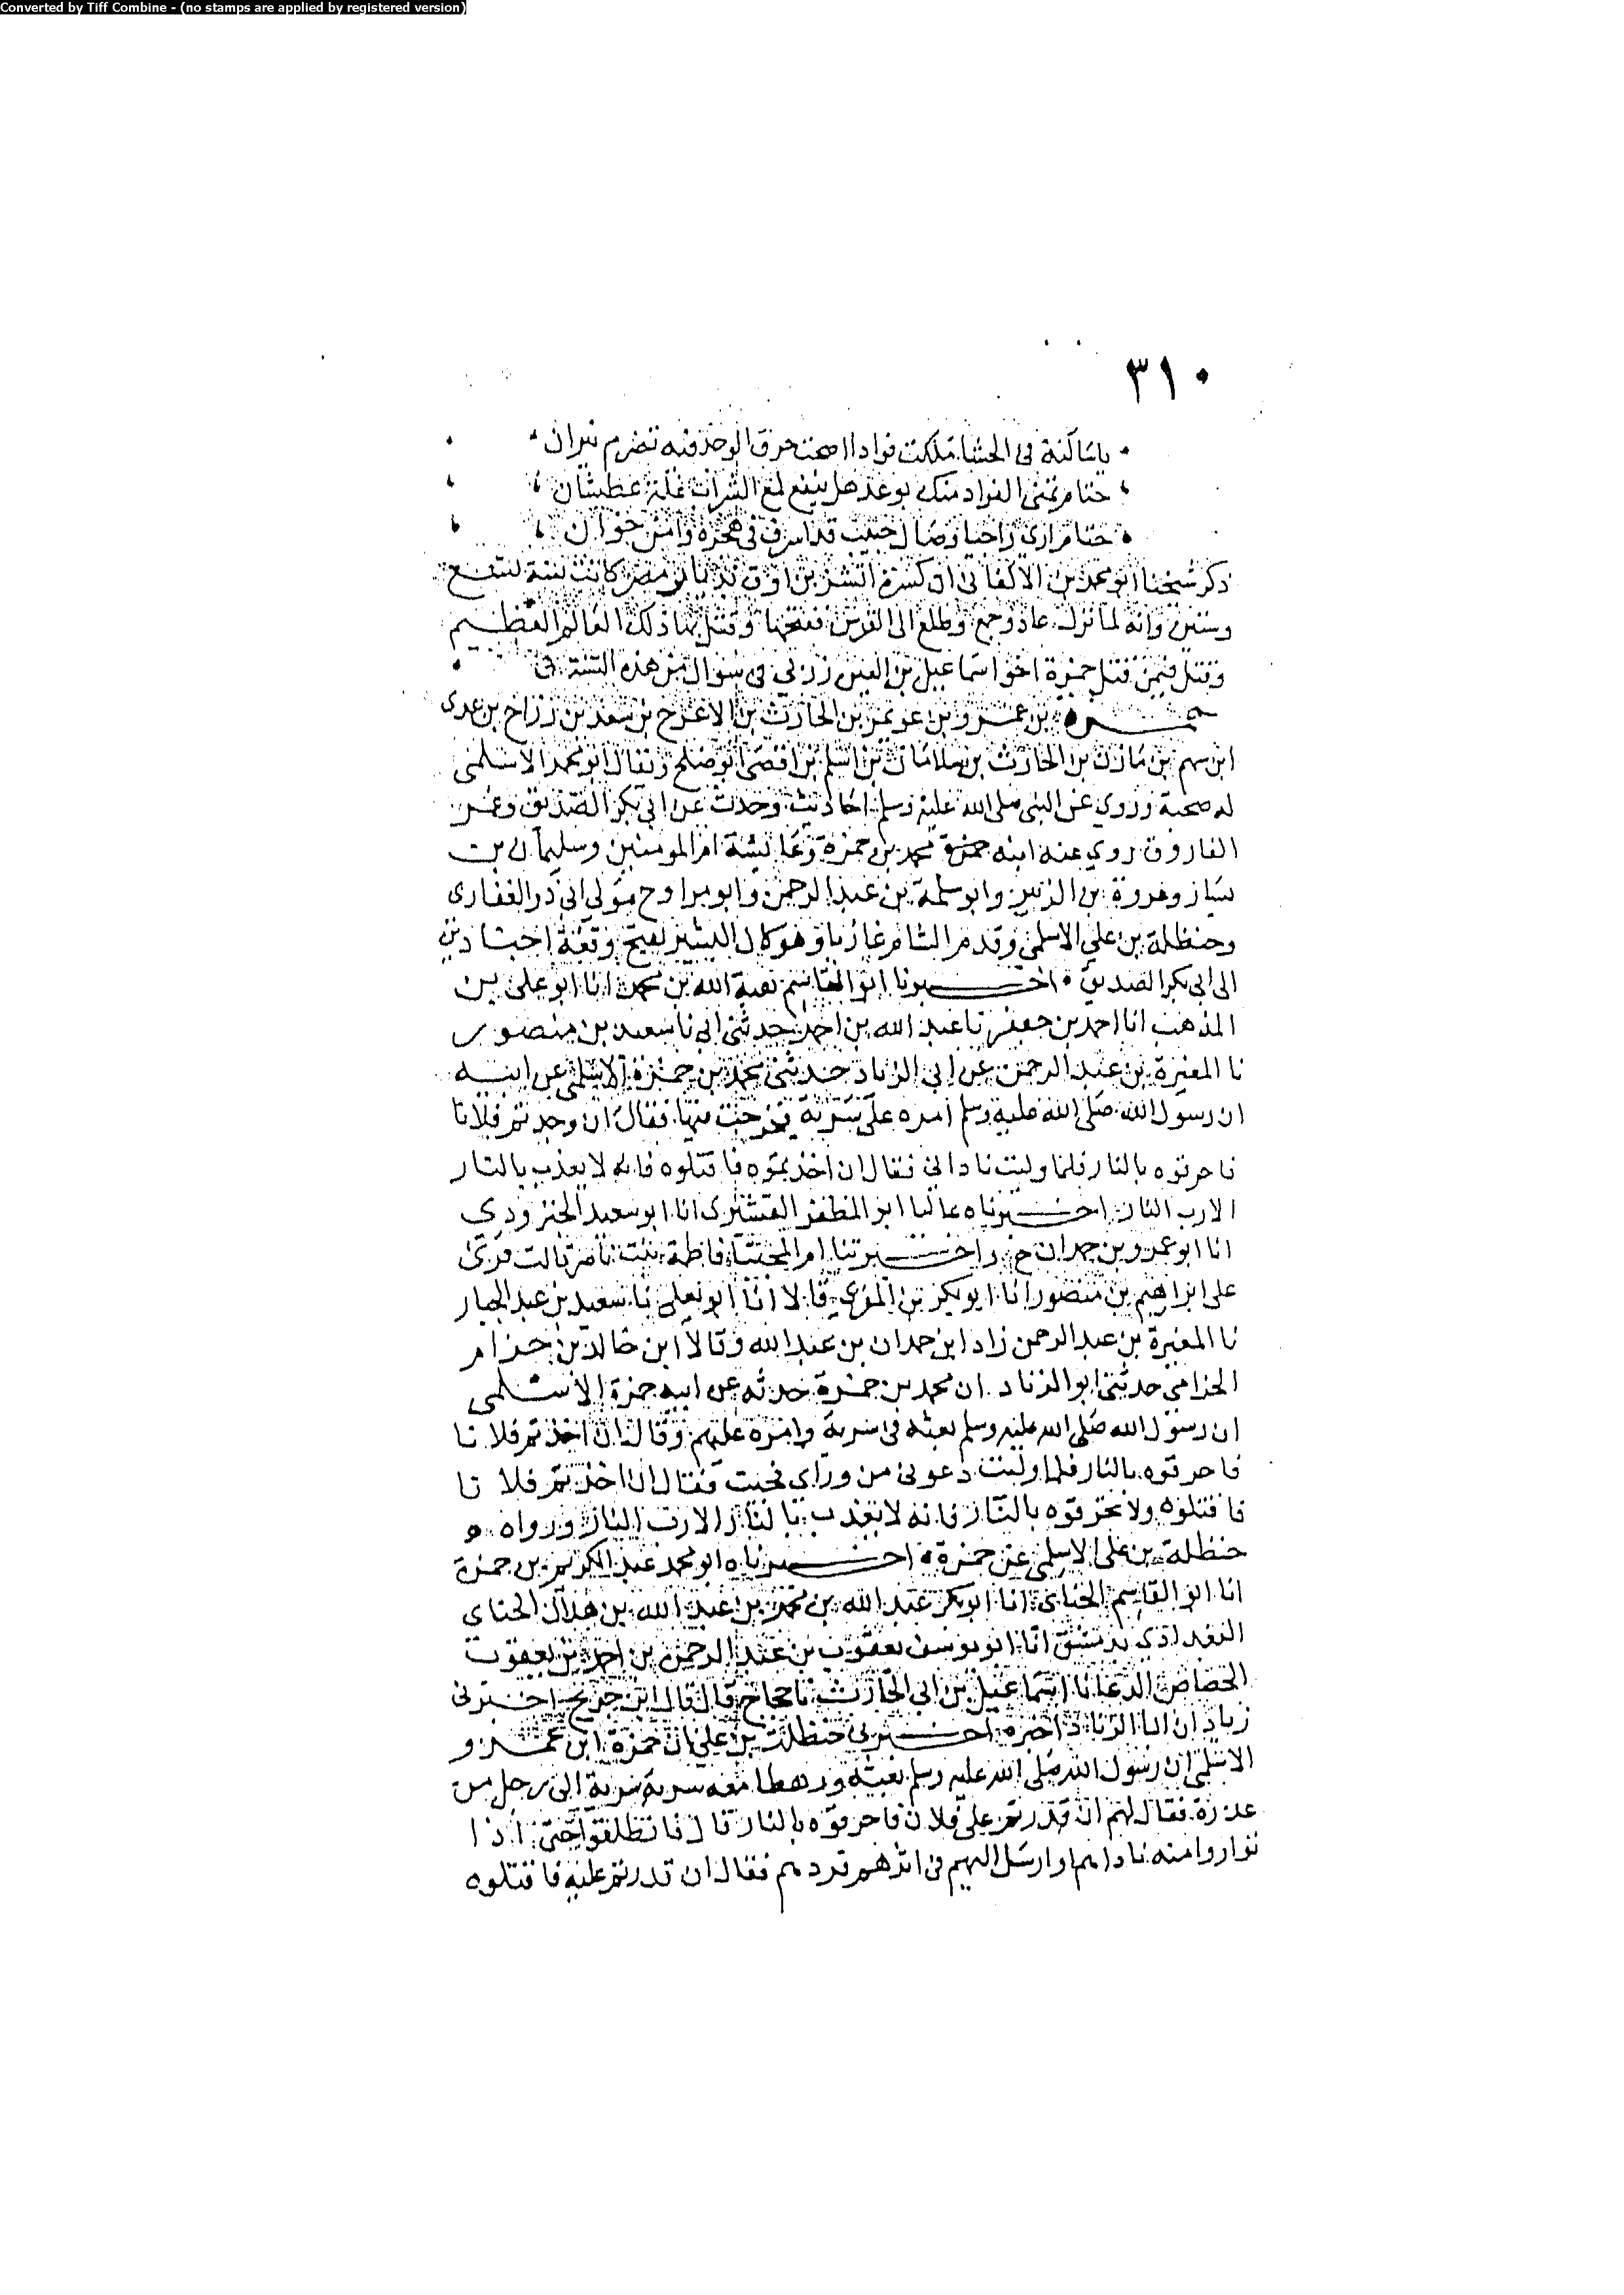 Converted by Tiff Combine - (no stamps are applied by registered version)
٣١٠
يا ساكنة في الحشا ملكت فوادا اضحت حرق الوجد فيه تضرم نيران
حتام تمنى الفواد منك بوعد هل ينفع لمع الشراب غلة عطشان
حتام ارى راجيا وصال حبيب قد اسرف في هجره وامن خوان
ذكر شيخنا ابو محمد بن الاكفاني ان كسرة اتسز بن اوق بمصر كانت سنة تسع
وستين وانه لما نزل عاد وجمع وطلع الى القدس ففتحها وقتل بها ذلك العالم العظيم
وقتل فيمن قتل حمزة اخو اسماعيل بن العين زربي في شوال من هذه السنة
حمزة بن عمرو بن عويمر بن الحارث بن الاعرج بن سعد بن رزاح بن عدى
ابن سهم بن مازن بن الحارث بن سلامان بن اسلم بن افصى ابو صلح ويقال ابو محمد الاسلمي
له صحبة وروى عن النبي صلى الله عليه وسلم احاديث وحدث عن ابي بكر الصديق وعمر
الفاروق روي عنه ابنه محمد بن حمزة وعائشة ام المومنين وسليمان بن
يسار وعروة بن الزبير وابو سلمة بن عبد الرحمن وابو مراوح مولى ابي ذر الغفارى
وحنظلة بن علي الاسلمي وقدم الشام غازيا وهو كان البشير بفتح وقعة اجنادين
الى ابي بكر الصديق اخبرنا ابو القاسم هبة الله بن محمد انا ابو على بن
المذهب انا احمد بن جعفر نا عبد الله بن احمد حدثني ابي نا سعيد بن منصور
نا المغيرة بن عبد الرحمن عن ابي الزناد حدثني محمد بن حمزة الاسلمي عن ابيه
ان رسول الله صلى الله عليه وسلم امره على سرية فخرجت فيها فقال ان وجدتم فلانا
فاحرقوه بالنار فلما وليت ناداني فقال ان اخذتموه فاقتلوه فانه لا يعذب بالنار
الا رب النار اخبرناه عاليا ابو المظفر القشيرى انا ابو سعيد الجنزرودي
انا ابو عمرو بن حمدان ح واخبرتنا ام المجتبا فاطمة بنت ناصر قالت قرئ
على ابراهيم بن منصور انا ابو بكر بن المقرى قالا انا ابو يعلى نا سعيد بن عبد الجبار
نا المغيرة بن عبد الرحمن زاد ابن حمدان بن عبد الله وقالا ابن خالد بن حزام
الحزامي حدثني ابو الزناد ان محمد بن حمزة حدثه عن ابيه حمزة الاسلمى
ان رسول الله صلى الله عليه وسلم بعثه في سرية وامره عليهم وقال ان اخذتم فلانا
فاحرقوه بالنار فلما وليت دعوني من وراي فجيت فقال ان اخذتم فلانا
فاقتلوه ولا تحرقوه بالنار فانه لا يعذب بالنار الا رب النار ورواه
حنظلة بن على الاسلمي عن حمزة اخبرناه ابو محمد عبد الكريم بن حمزة
انا ابو القاسم الحناى انا ابو بكر عبد الله بن محمد بن عبد الله بن هلال الحناى
البغدادى بدمشق انا ابو يوسف يعقوب بن عبد الرحمن بن احمد بن يعقوب
الجصاص الدعا نا اسماعيل بن ابي الحارث نا حجاج قال قال ابن جريج اخبرني
زياد ان ابا الزناد اخبره اخبرني حنظلة بن علي ان حمزة ابن عمرو
الاسلمي ان رسول الله صلى الله عليه وسلم بعثه ورهطا معه سرية سرية الى رجل من
عذرة فقال لهم ان قدرتم على فلان فاحرقوه بالنار قال فانطلقوا حتى اذا
تواروا منه ناداهم او ارسل اليهم في اثرهم فردهم فقال ان قدرتم عليه فاقتلوه